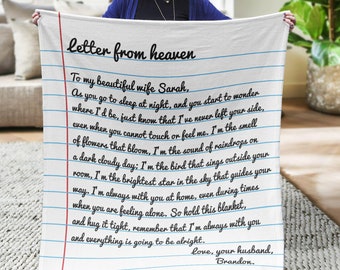 letter from heaven
To my beautiful wife Sarah,
As you go to sleep at night, and you start to wonder
where I'd be, just know that I've never left your side,
even when you cannot touch or feel me. I'm the smell
of flowers that bloom, I'm the sound of raindrops on
a dark cloudy day; I'm the bird that sings outside your
room, I'm the brightest star in the sky that guides your
way. I'm always with you at home, even during times
when you are feeling alone. So hold this blanket,
and hug it tight, remember that I'm always with you
and everything is going to be alright.
Love, your husband,
Brandon.